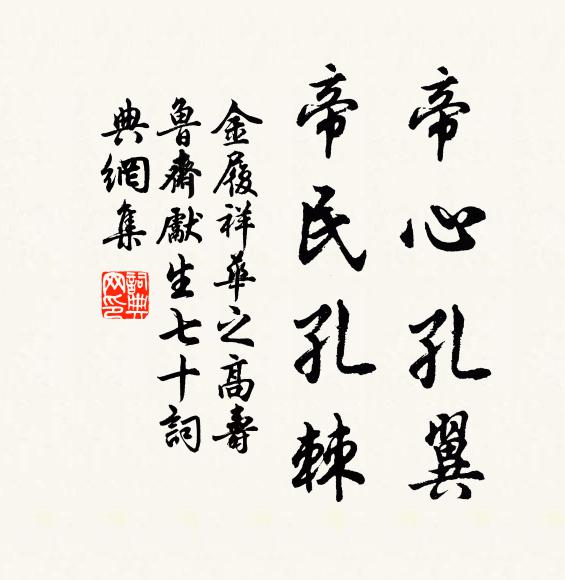 帝心孔翼
帝民孔棘
金履祥華之高壽
魯齋獻生七十詞
典網集
詞典網印